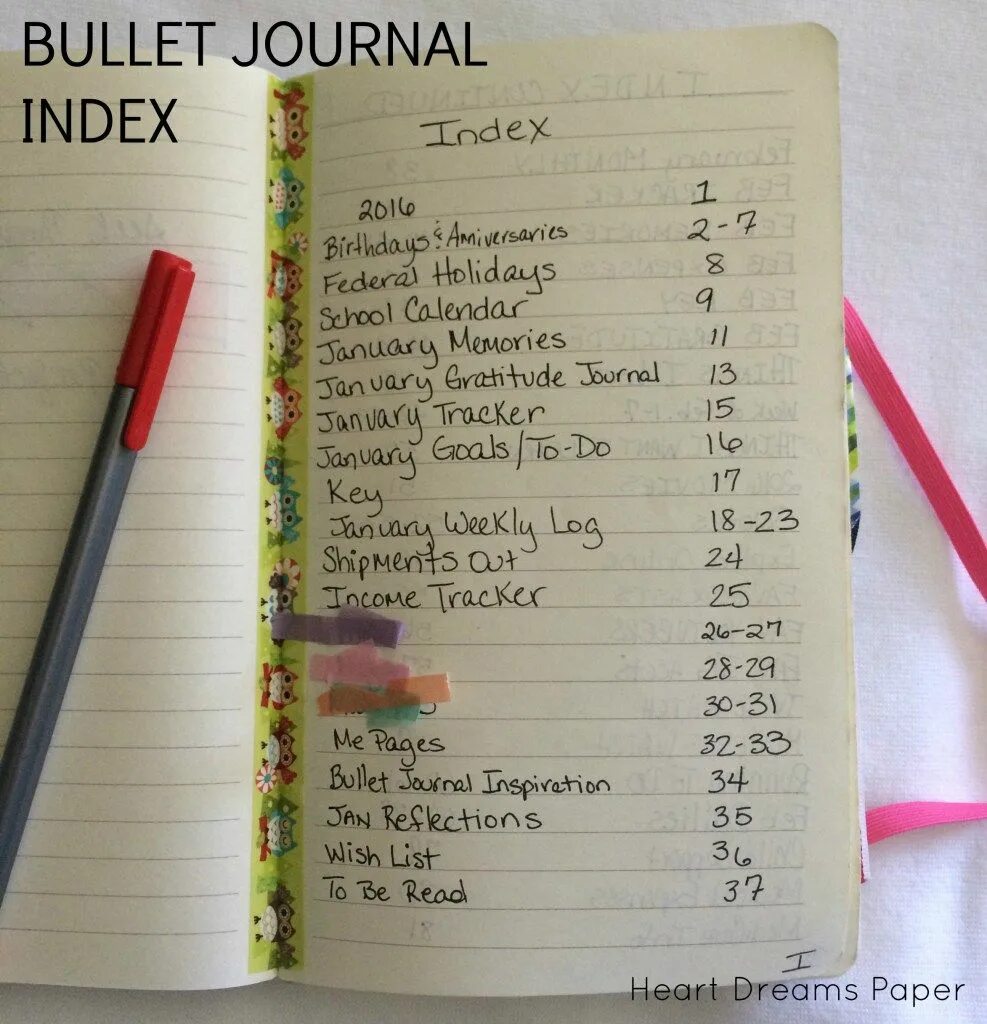 BULLET JOURNAL
INDEX
Index
2016 1
Birthdays & Aniversaries 2-7
Federal Holidays 8
School Calendar 9
January Memories 11
January Gratitude Journal 13
January Tracker 15
January Goals/To-Do 16
Key 17
January Weekly Log 18-23
Shipments Out 24
Income Tracker 25
26-27
28-29
30-31
Me Pages 32-33
Bullet Journal Inspiration 34
JAN Reflections 35
Wish List 36
To Be Read 37
I
Heart Dreams Paper